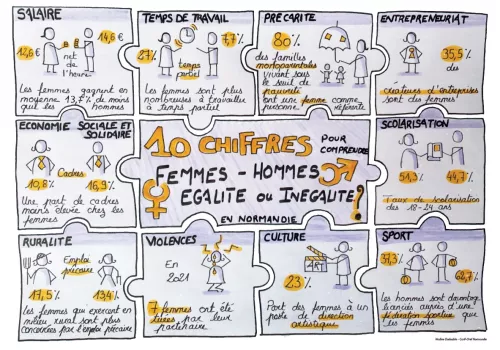 SALAIRE
12,6€
14,6€
net
de
l'heure
Les femmes gagnent en
moyenne 13,7% de moins
que les hommes
TEMPS DE TRAVAIL
27%
7,7%
temps
partiel
Les femmes sont plus
nombreuses à travailler
à temps partiel
PRÉCARITÉ
80%
des familles
monoparentales
vivant sous
le seuil de
pauvreté
ont une femme comme
personne référente
ENTREPRENEURIAT
35,5%
des
créateurs d'entreprises
sont des femmes
ECONOMIE SOCIALE ET
SOLIDAIRE
Cadres
10,8%
16,9%
Une part de cadres
moins élevée chez les
femmes
10 CHIFFRES
POUR
COMPRENDRE
FEMMES - HOMMES
EGALITÉ OU INÉGALITÉ ?
EN NORMANDIE
SCOLARISATION
51,3%
44,7%
Taux de scolarisation
des 18-24 ans
RURALITÉ
Emploi
précaire
17,5%
13,4%
Les femmes qui exercent en
milieu rural sont plus
concernées par l'emploi précaire
VIOLENCES
En
2021
7 femmes ont été
tuées par leur
partenaire
CULTURE
ART
23%
Part des femmes à un
poste de direction
artistique
SPORT
37,3%
62,7%
Les hommes sont davantage
licenciés auprès d'une
fédération sportive que
les femmes